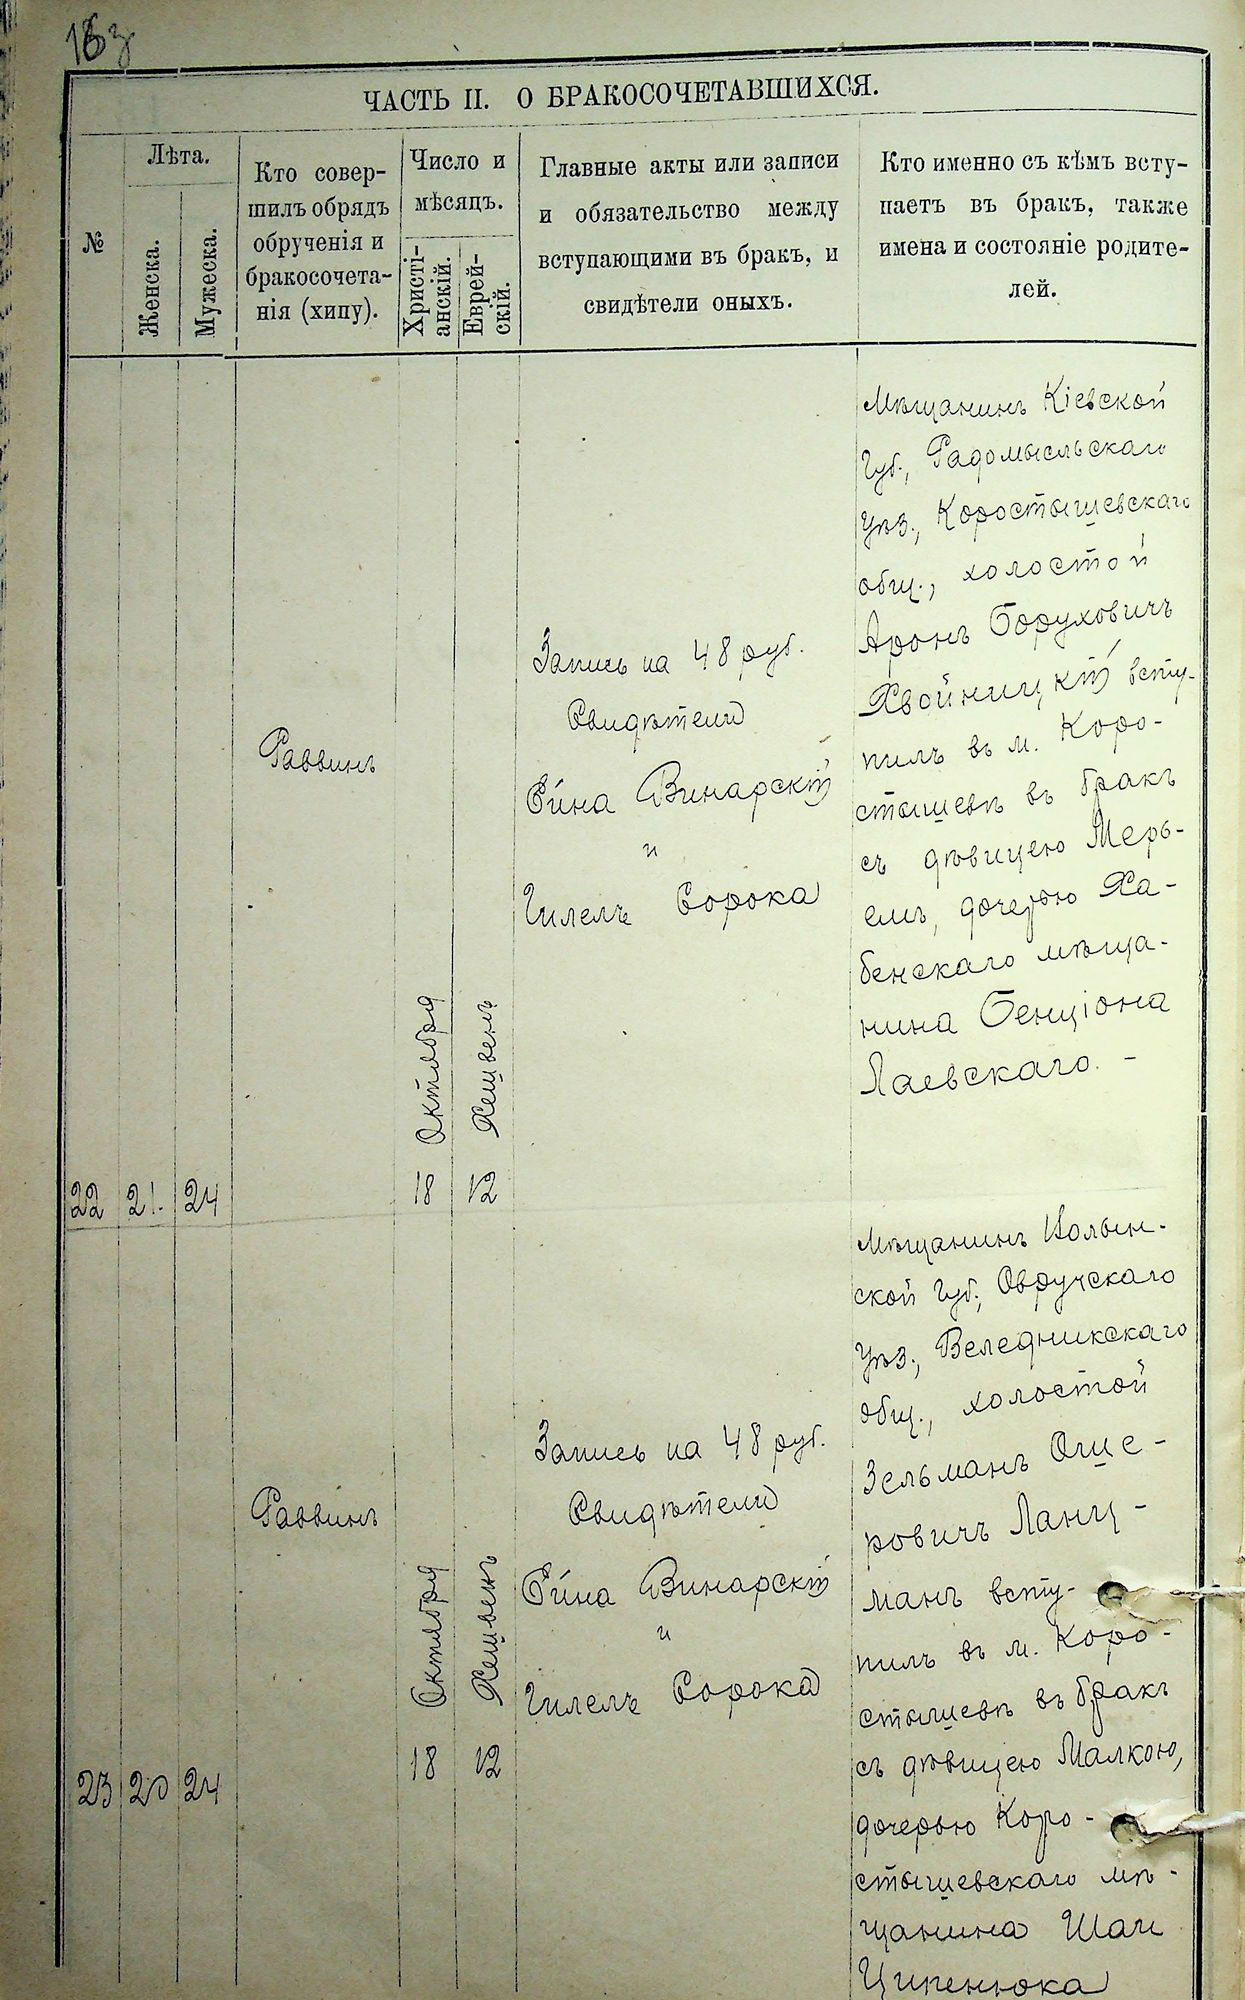 ЧАСТЬ II. О БРАКОСОЧЕТАВШИХСЯ.
№
Лѣта.
Женска.
Мужеска.
Кто совер-
шилъ обрядъ
обрученія и
бракосочета-
нія (хипу).
Число и
мѣсяцъ.
Христі-
анскій.
Еврей-
скій.
Главные акты или записи
и обязательство между
вступающими въ бракъ, и
свидѣтели оныхъ.
Кто именно съ кѣмъ всту-
паетъ въ бракъ, также
имена и состояніе родите-
лей.
22
21.
24
Раввинъ
18
Октября
12
Хешвенъ
Запись на 48 руб.
Свидѣтели
Сина Винарскій
и
Гилелъ Сорока
Мѣщанинъ Кіевской
Губ., Радомысльскаго
уѣз., Коростышевскаго
общ., холостой
Аронъ Боруховичъ
Хвойницкій всту-
пилъ въ м. Коро-
стышевѣ въ бракъ
съ дѣвицею Мерь-
емъ, дочерью Ха-
бенскаго мѣща-
нина Бенціона
Лаевскаго. -
23
20
24
Раввинъ
18
Октября
12
Хешвенъ
Запись на 48 руб.
Свидѣтели
Сина Винарскій
и
Гилелъ Сорока
Мѣщанинъ Волын-
ской Губ., Овручскаго
уѣз., Веледникскаго
общ., холостой
Зельманъ Оше-
ровичъ Ланц-
манъ всту-
пилъ въ м. Коро-
стышевѣ въ бракъ
съ дѣвицею Малкою,
дочерью Коро-
стышевскаго мѣ-
щанина Шаи
Ципенюка